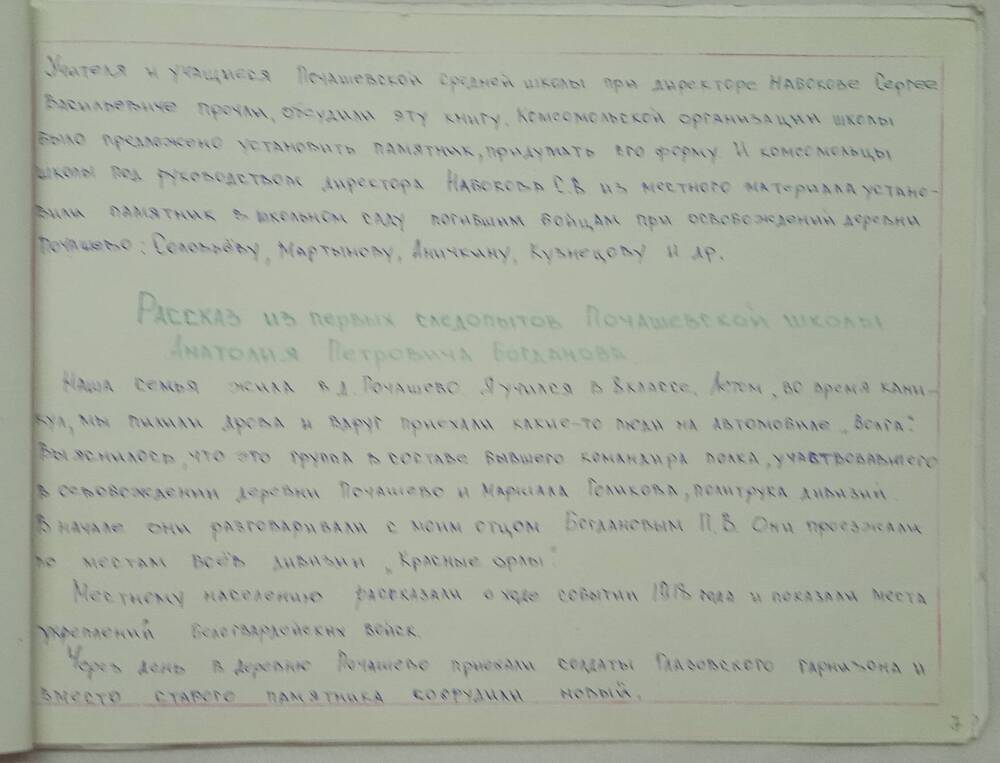 Учителя и учащиеся Почашевской средней школы при директоре Набокове Сергее
Васильевиче прочли, обсудили эту книгу. Комсомольской организации школы
было предложено установить памятник, придумать его форму. И комсомольцы
школы под руководством директора Набокова С.В из местного материала устано-
вили памятник в школьном саду погибшим бойцам при освобождений деревни
Почашево: Соловьёву, Мартынову, Аничкину, Кузнецову и др.
Рассказ из первых следопытов Почашевской школы
Анатолия Петровича Богданова.
Наша семья жила в д. Почашево. Я учился в 8 классе. Летом, во время кани-
кул, мы пилили дрова и вдруг приехали какие-то люди на автомобиле „Волга".
Выяснилось, что это группа в составе бывшего командира полка, участвовавшего
в освобождении деревни Почашево и Маршала Голикова, политрука дивизий.
В начале они разговаривали с моим отцом Богдановым П.В. Они проезжали
по местам боёв дивизии „Красные орлы"
Местному населению рассказали о ходе событий 1918 года и показали места
укреплений белогвардейских войск.
Через день в деревню Почашево приехали солдаты Глазовского гарнизона и
вместо старого памятника соорудили новый.
7